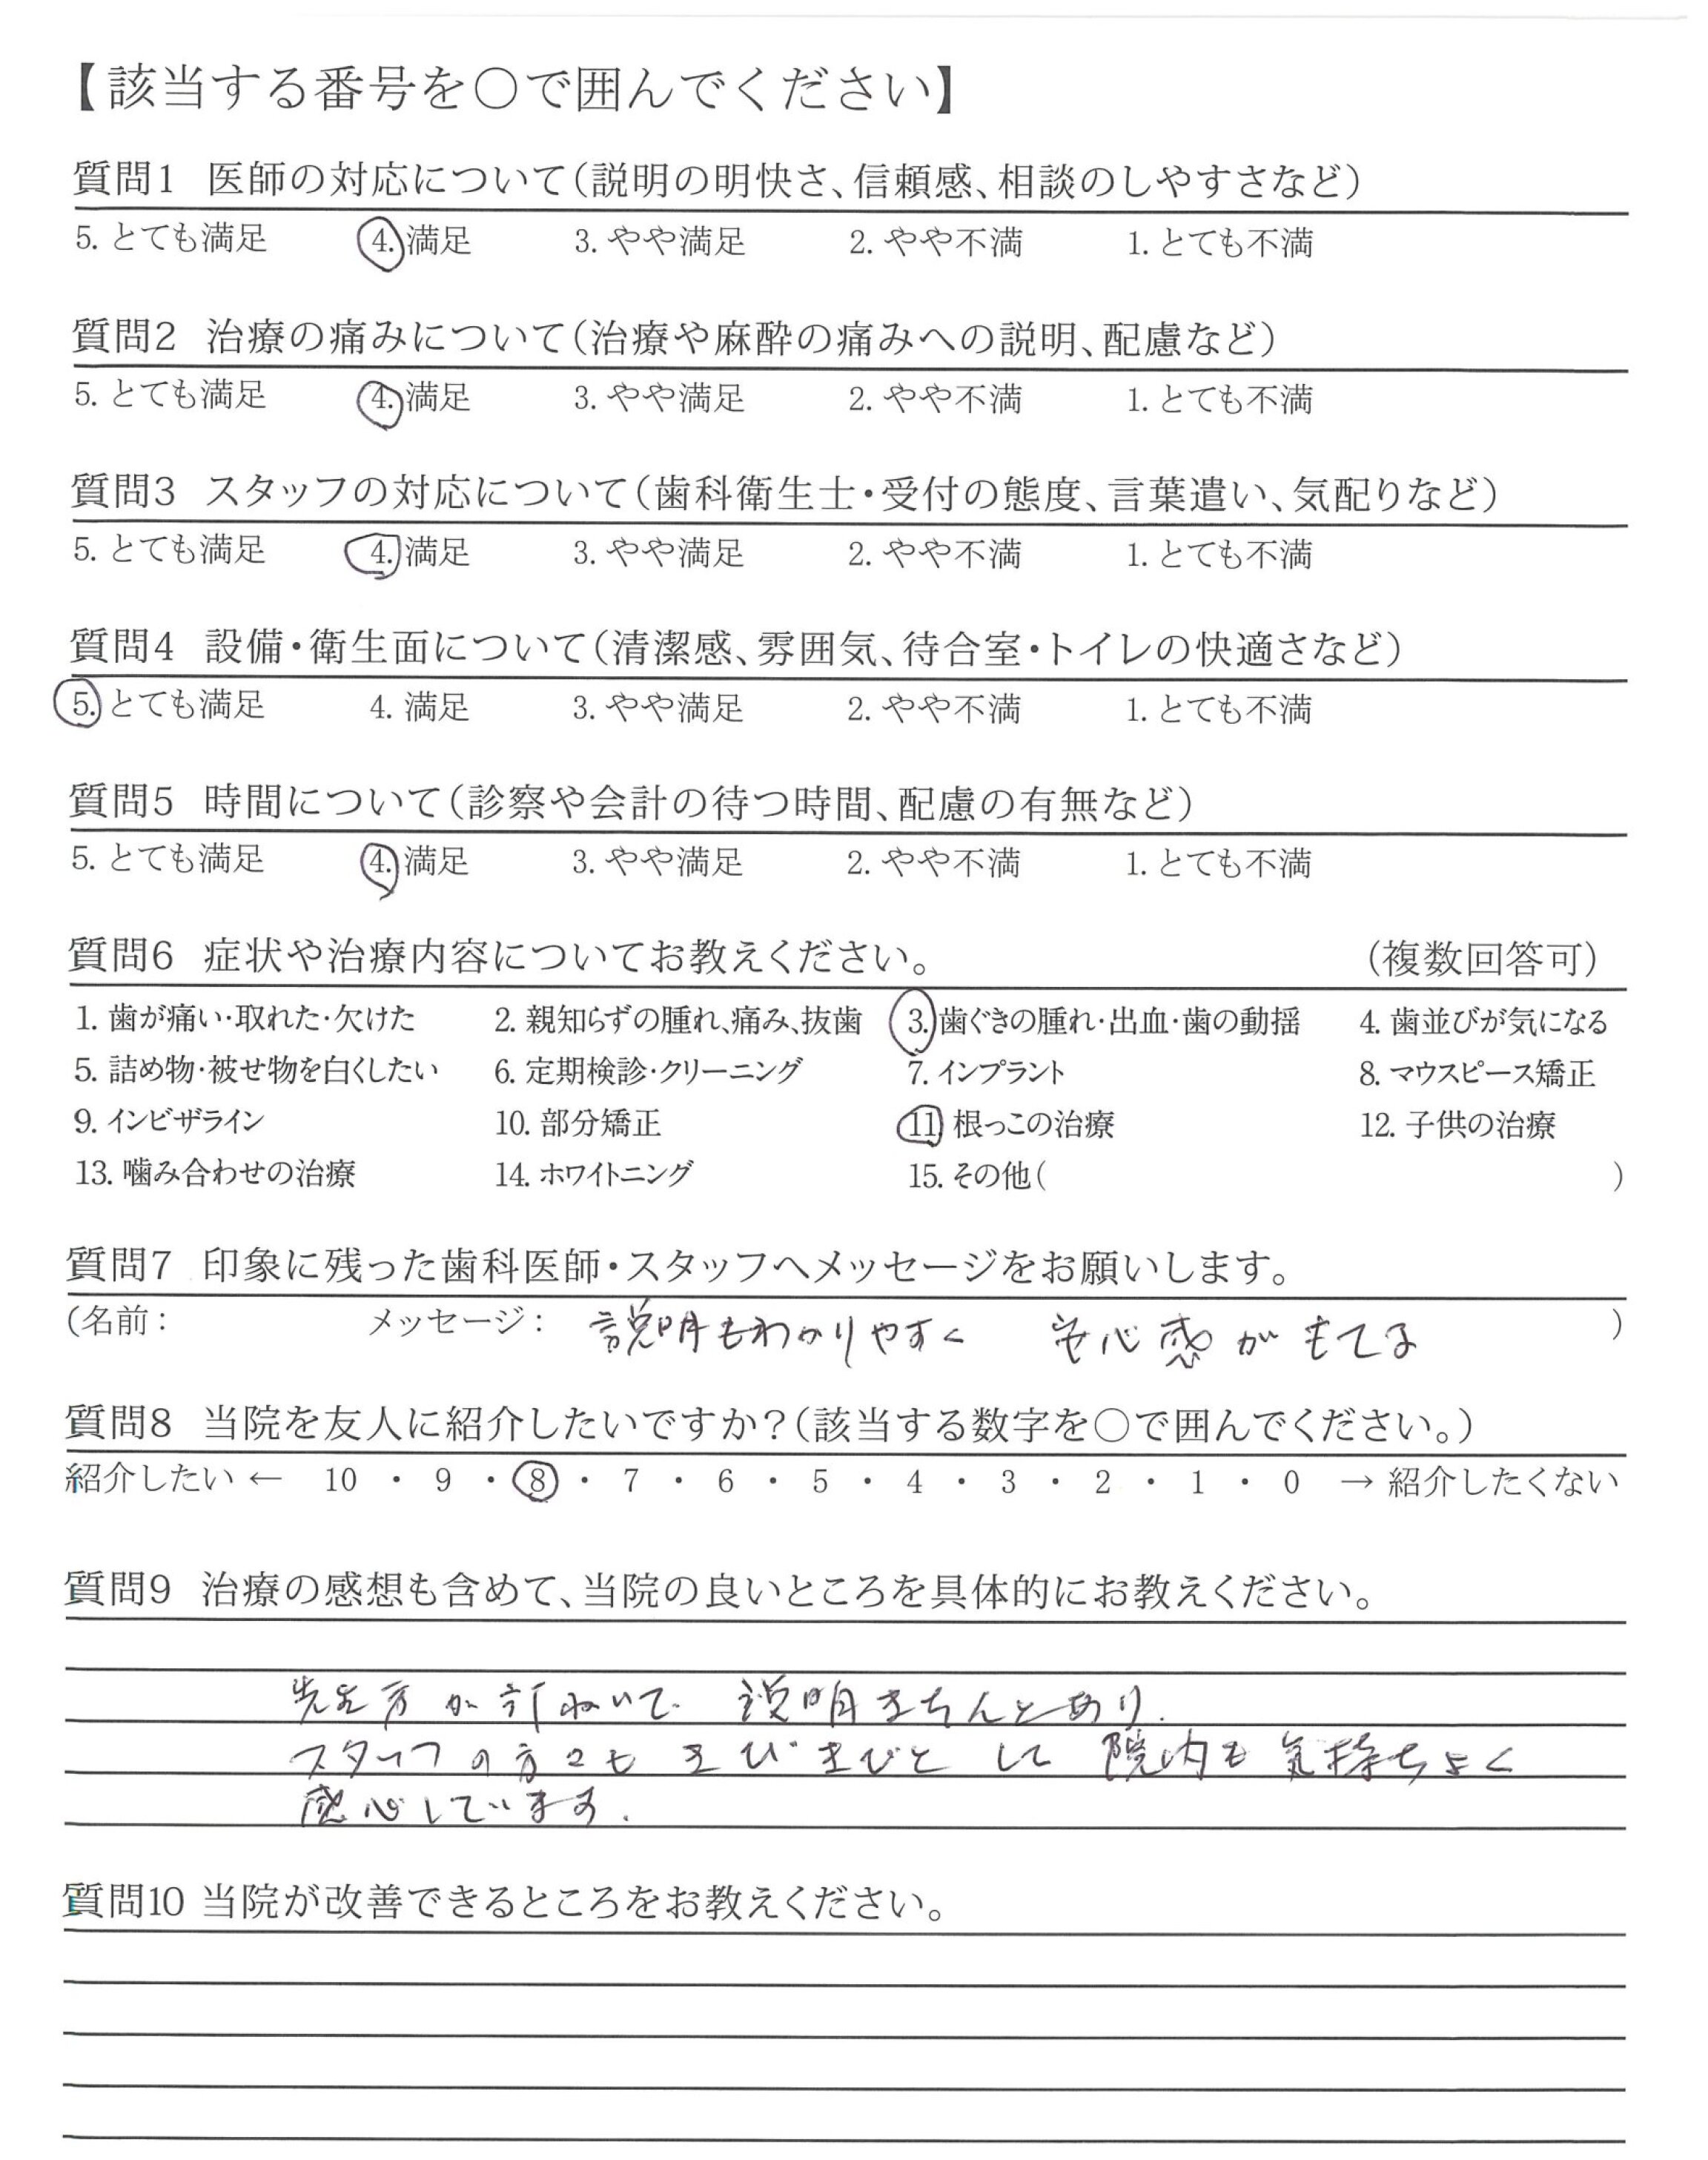 【該当する番号を○で囲んでください】
質問1 医師の対応について(説明の明快さ、信頼感、相談のしやすさなど)
5. とても満足 4. 満足 3. やや満足 2. やや不満 1. とても不満
質問2 治療の痛みについて(治療や麻酔の痛みへの説明、配慮など)
5. とても満足 4. 満足 3. やや満足 2. やや不満 1. とても不満
質問3 スタッフの対応について(歯科衛生士・受付の態度、言葉遣い、気配りなど)
5. とても満足 4. 満足 3. やや満足 2. やや不満 1. とても不満
質問4 設備・衛生面について(清潔感、雰囲気、待合室・トイレの快適さなど)
5. とても満足 4. 満足 3. やや満足 2. やや不満 1. とても不満
質問5 時間について(診察や会計の待つ時間、配慮の有無など)
5. とても満足 4. 満足 3. やや満足 2. やや不満 1. とても不満
質問6 症状や治療内容についてお教えください。 (複数回答可)
1. 歯が痛い・取れた・欠けた 2. 親知らずの腫れ、痛み、抜歯 3. 歯ぐきの腫れ・出血・歯の動揺 4. 歯並びが気になる
5. 詰め物・被せ物を白くしたい 6. 定期検診・クリーニング 7. インプラント 8. マウスピース矯正
9. インビザライン 10. 部分矯正 11 根っこの治療 12. 子供の治療
13. 噛み合わせの治療 14. ホワイトニング 15. その他( )
質問7 印象に残った歯科医師・スタッフへメッセージをお願いします。
(名前: メッセージ: 説明もわかりやすく 安心感がもてる )
質問8 当院を友人に紹介したいですか?(該当する数字を○で囲んでください。)
紹介したい ← 10 ・ 9 ・ 8 ・ 7 ・ 6 ・ 5 ・ 4 ・ 3 ・ 2 ・ 1 ・ 0 → 紹介したくない
質問9 治療の感想も含めて、当院の良いところを具体的にお教えください。
先生方が 説明きちんとあり.
スタッフの方々も きびきびと して 院内も 気持ちよく
感心しています.
質問10 当院が改善できるところをお教えください。